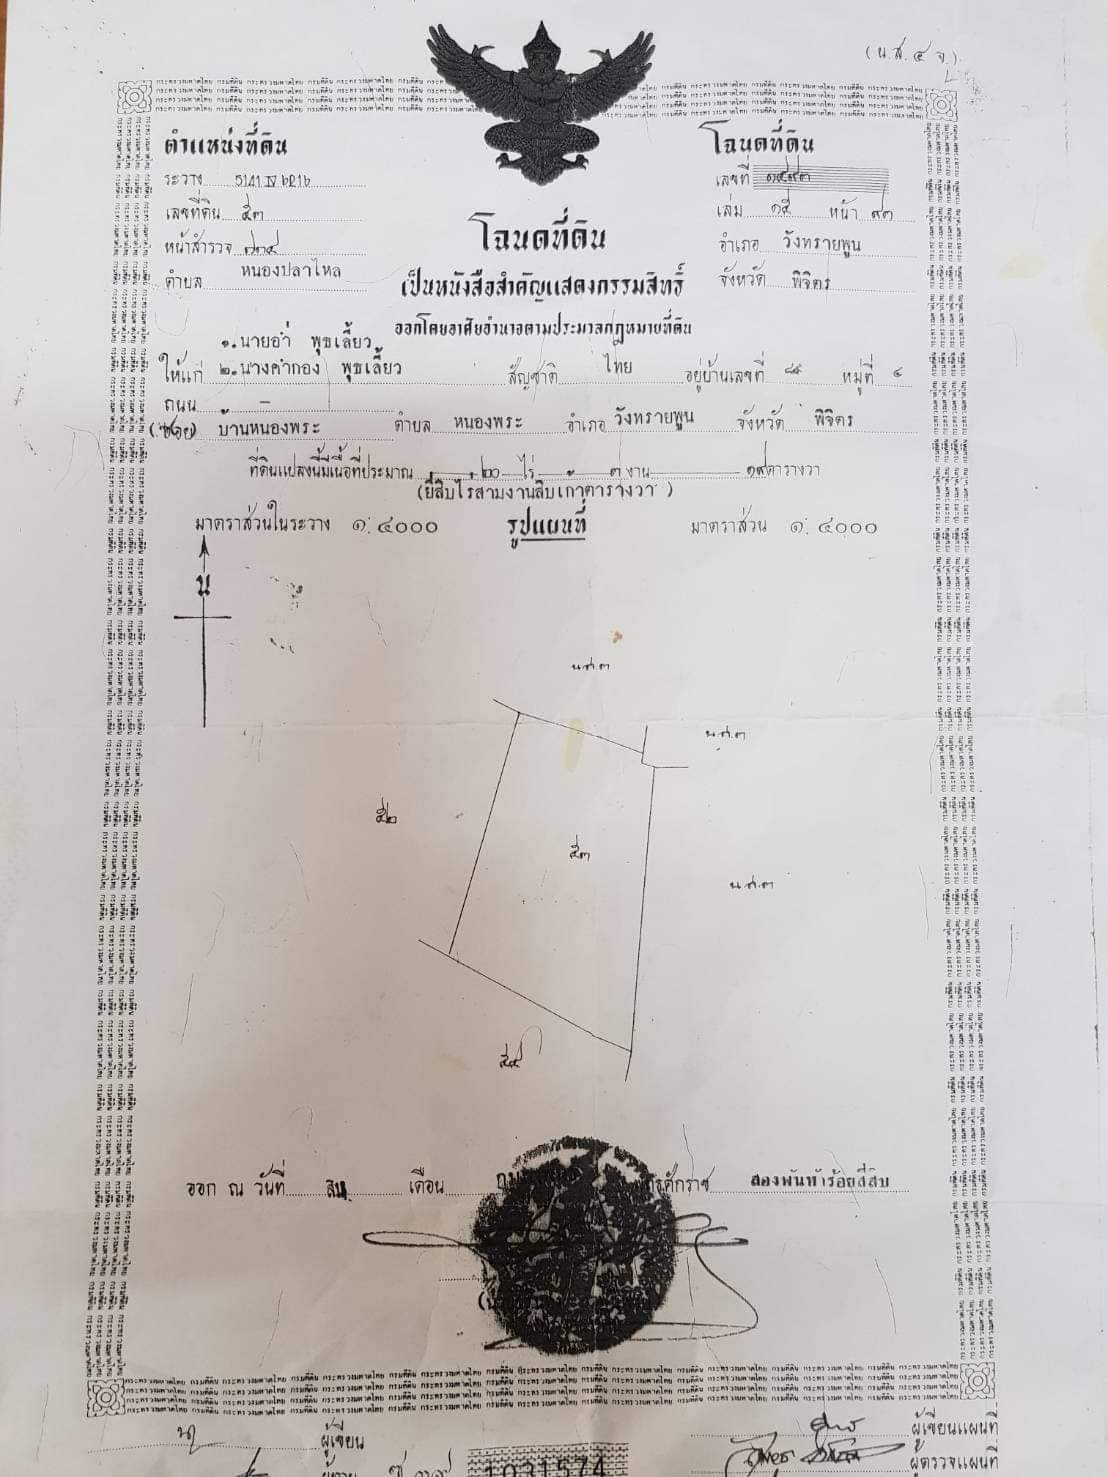 (น.ส.๔ จ.)
ตำแหน่งที่ดิน
ระวาง 5141 IV ๒๙๑๖
เลขที่ดิน ๕๓
หน้าสำรวจ
ตำบล หนองปลาไหล
โฉนดที่ดิน
เลขที่
เล่ม ๑๕ หน้า ๙๓
อำเภอ วังทรายพูน
จังหวัด พิจิตร
โฉนดที่ดิน
เป็นหนังสือสำคัญแสดงกรรมสิทธิ์
ออกโดยอาศัยอำนาจตามประมวลกฎหมายที่ดิน
๑. นายอ่ำ พุธเลี้ยว
ให้แก่ ๒. นางคำกอง พุธเลี้ยว สัญชาติ ไทย อยู่บ้านเลขที่ หมู่ที่
ถนน -
บ้านหนองพระ ตำบล หนองพระ อำเภอ วังทรายพูน จังหวัด พิจิตร
ที่ดินแปลงนี้มีเนื้อที่ประมาณ ๒๐ ไร่ ๓ งาน ๑๙ ตารางวา
(ยี่สิบไร่สามงานสิบเก้าตารางวา)
มาตราส่วนในระวาง ๑:๔๐๐๐ รูปแผนที่ มาตราส่วน ๑:๔๐๐๐
น
น.ส.๓
น.ส.๓
๕๒
๕๓
น.ส.๓
๕๔
ออก ณ วันที่ สิบ เดือน พุทธศักราช สองพันห้าร้อยสี่สิบ
ผู้เขียน
ผู้เขียนแผนที่
ผู้ตรวจแผนที่
1031574